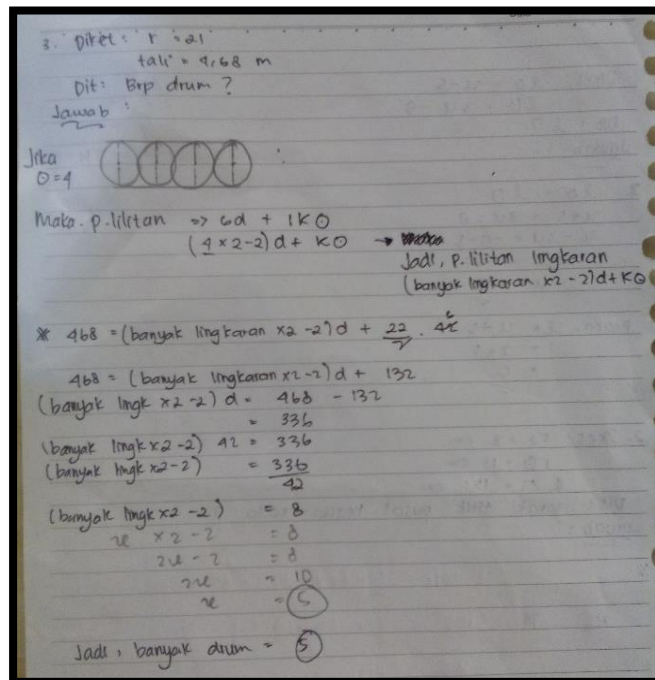 3. Diket : r = 21
tali = 4,68 m
Dit : Brp drum ?
Jawab :
Jika
⊙ = 4
Maka. p. lilitan => 6d + 1K⊙
(4 x 2 - 2) d + K⊙ →
Jadi, p. lilitan lingkaran
(banyak lingkaran x2 - 2)d + K⊙
* 468 = (banyak lingkaran x2 - 2)d + 22/7 . 42 6
468 = (banyak lingkaran x2 - 2)d + 132
(banyak lingk x2 - 2) d = 468 - 132
= 336
(banyak lingk x2 - 2) 42 = 336
(banyak lingk x2 - 2) = 336/42
(banyak lingk x2 - 2) = 8
x x 2 - 2 = 8
2x - 2 = 8
2x = 10
x = 5
Jadi, banyak drum = 5